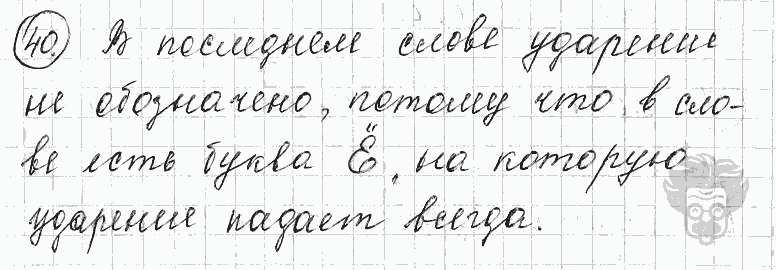 40. В последнем слове ударение
не обозначено, потому что в сло-
ве есть буква "Ё", на которую
ударение падает всегда.